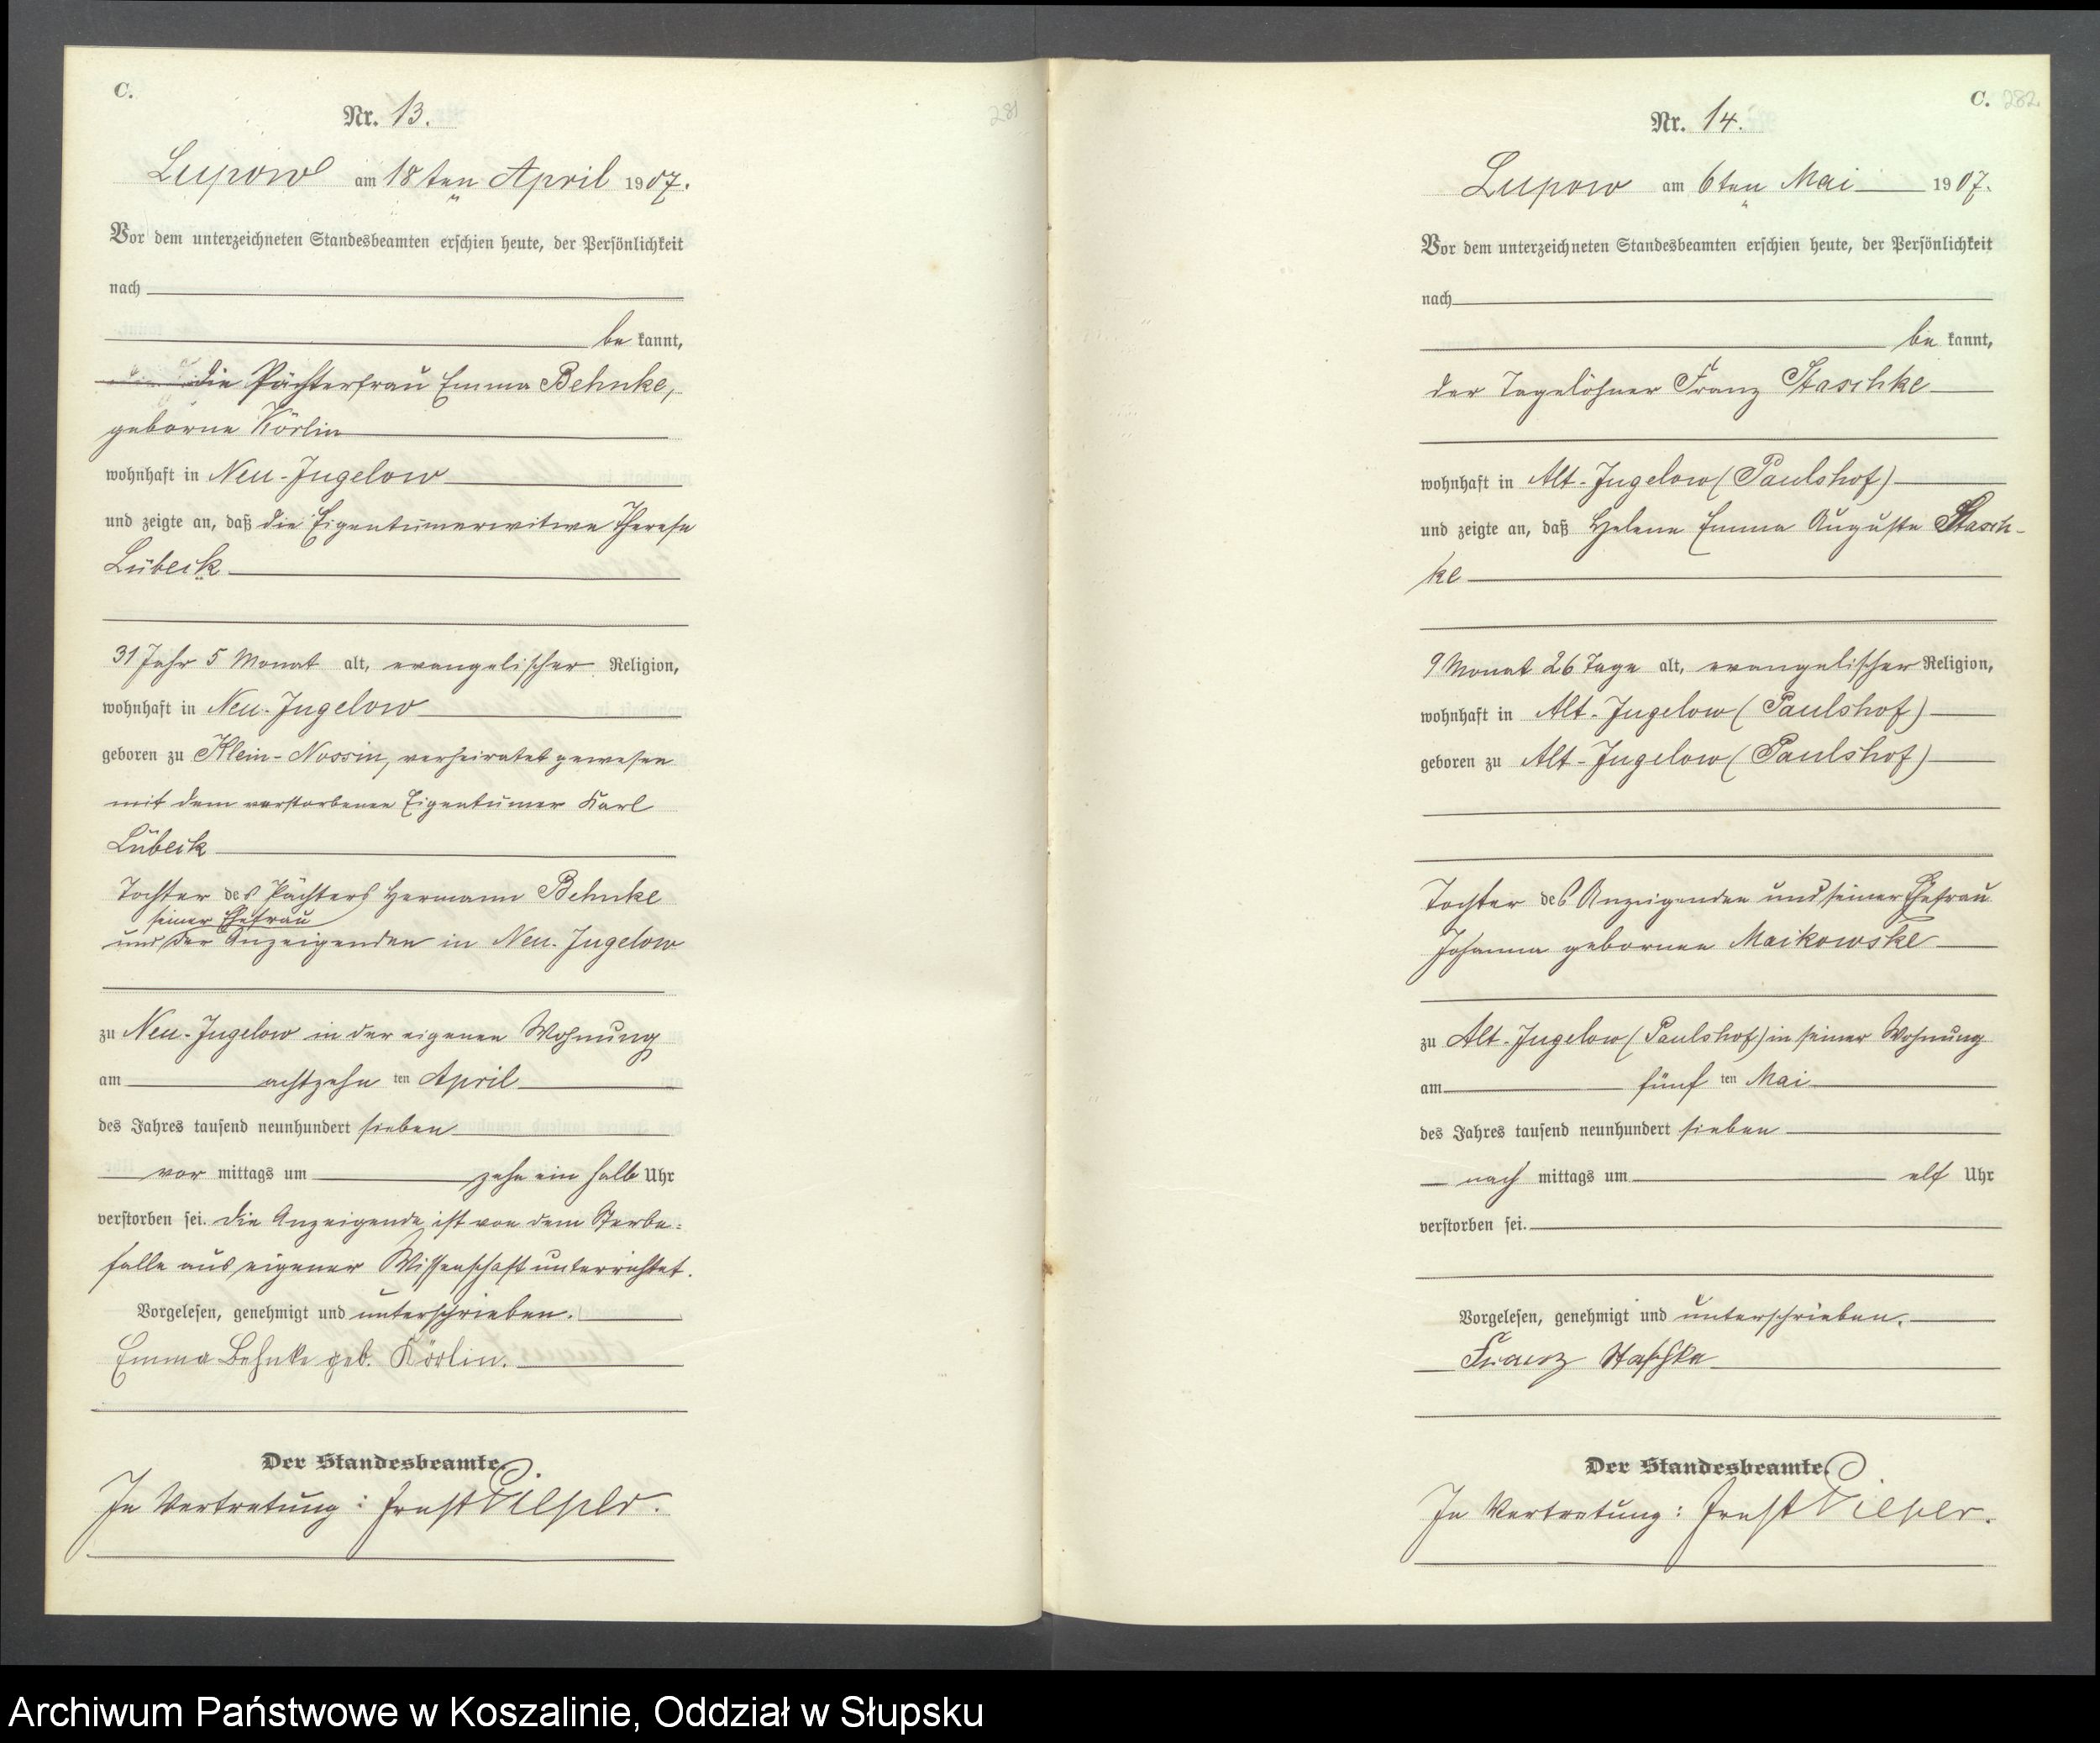 C.
Nr. 13.
Lupow am 18ten April 1907.
Vor dem unterzeichneten Standesbeamten erschien heute, der Persönlichkeit
nach
be kannt,
die Pächterfrau Emma Behnke,
geborne Körlin
wohnhaft in Neu-Jugelow
und zeigte an, daß die Eigentümerwitwe Therese
Lübeck
31 Jahr 5 Monat alt, evangelischer Religion,
wohnhaft in Neu-Jugelow
geboren zu Klein-Nossin, verheiratet gewesen
mit dem verstorbenen Eigentümer Karl
Lübeck
Tochter des Pächters Hermann Behnke
seiner Ehefrau
und der Anzeigenden in Neu-Jugelow
zu Neu-Jugelow in der eigenen Wohnung
am achtzehn ten April
des Jahres tausend neunhundert sieben
vor mittags um zehn ein halb Uhr
verstorben sei. Die Anzeigende ist von dem Sterbe=
falle aus eigener Wissenschaft unterrichtet.
Vorgelesen, genehmigt und unterschrieben.
Emma Behnke geb. Körlin.
Der Standesbeamte.
In Vertretung: Ernst Pieper.
281
C. 282.
Nr. 14.
Lupow am 6ten Mai 1907.
Vor dem unterzeichneten Standesbeamten erschien heute, der Persönlichkeit
nach
be kannt,
der Tagelöhner Franz Staschke
wohnhaft in Alt-Jugelow (Paulshof)
und zeigte an, daß Helene Emma Auguste Stasch-
ke
9 Monat 26 Tage alt, evangelischer Religion,
wohnhaft in Alt-Jugelow (Paulshof)
geboren zu Alt-Jugelow (Paulshof)
Tochter des Anzeigenden und seiner Ehefrau
Johanna gebornen Maikowske
zu Alt-Jugelow (Paulshof) in seiner Wohnung
am fünf ten Mai
des Jahres tausend neunhundert sieben
nach mittags um elf Uhr
verstorben sei.
Vorgelesen, genehmigt und unterschrieben.
Franz Staschke
Der Standesbeamte.
In Vertretung: Ernst Pieper.
Archiwum Państwowe w Koszalinie, Oddział w Słupsku